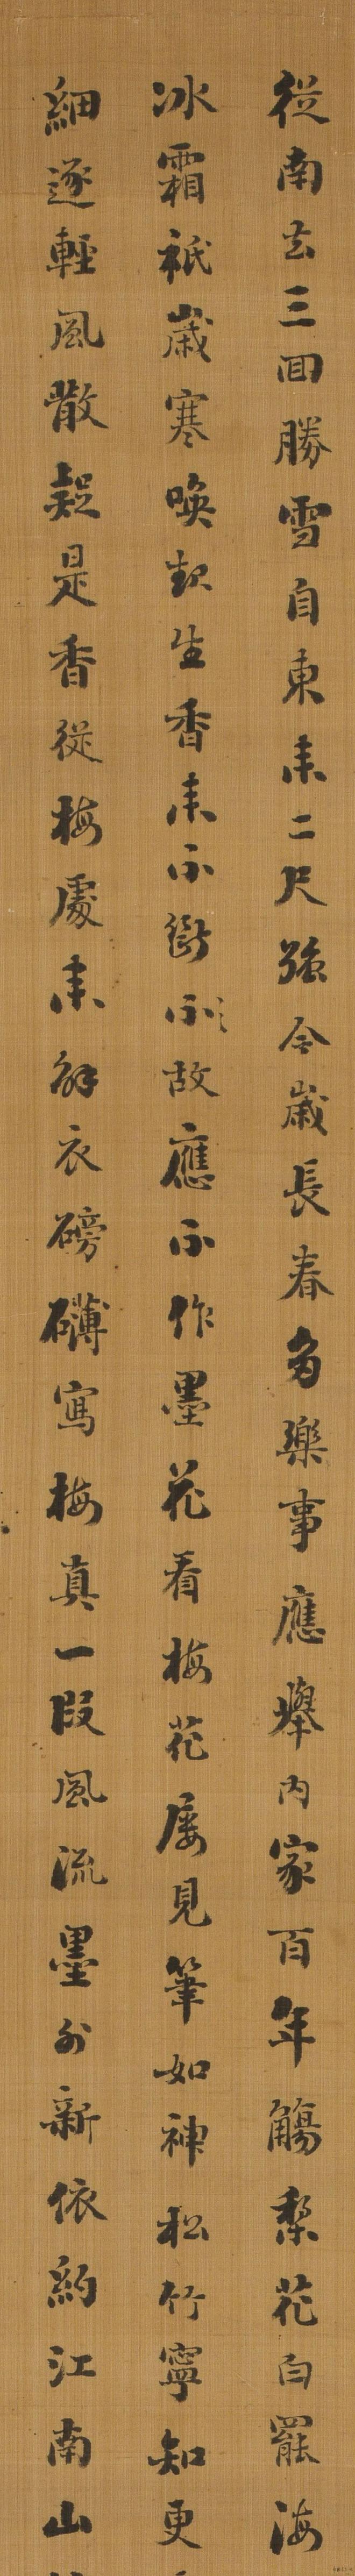 從南去三回勝雪自東来二尺強今歳長春多樂事應擧内家百年觴梨花白罷海
冰霜祇歳寒喚起生香来不斷不故應不作墨花看梅花屡見筆如神松竹寧知更
細逐輕風散疑是香從梅處来解衣磅礴寫梅真一段風流墨外新依約江南山